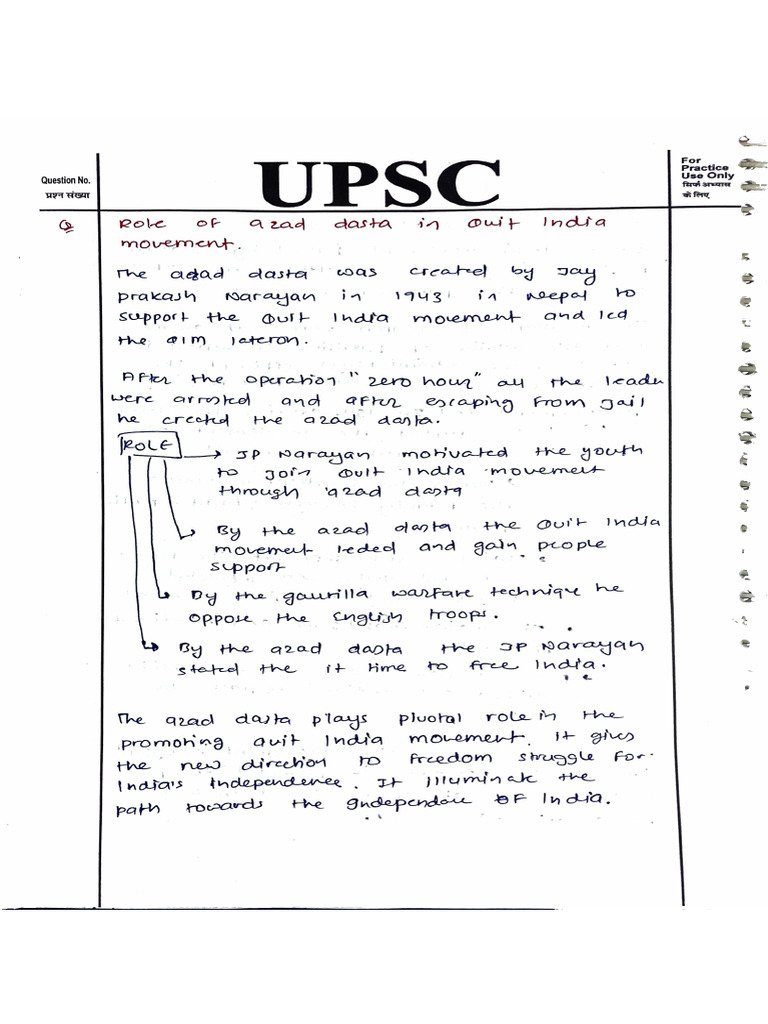 UPSC
Question No.
प्रश्न संख्या
For
Practice
Use Only
सिर्फ अभ्यास
के लिए
Q Role of azad dasta in Quit India
movement.
The azad dasta was created by Jay
prakash Narayan in 1943 in Nepal to
support the Quit India movement and led
the QIM lateron.
After the operation "zero hour" all the leader
were arrested and after escaping from Jail
he created the azad dasta.
ROLE
JP Narayan motivated the youth
to join Quit India movement
through azad dasta
By the azad dasta the Quit India
movement leded and gain people
support
By the gaurilla warfare technique he
oppose the English troops.
By the azad dasta the JP Narayan
stated the it time to free India.
The azad dasta plays pivotal role in the
promoting quit India movement. It gives
the new direction to freedom struggle for
India's Independence. It illuminate the
path towards the Independence OF India.